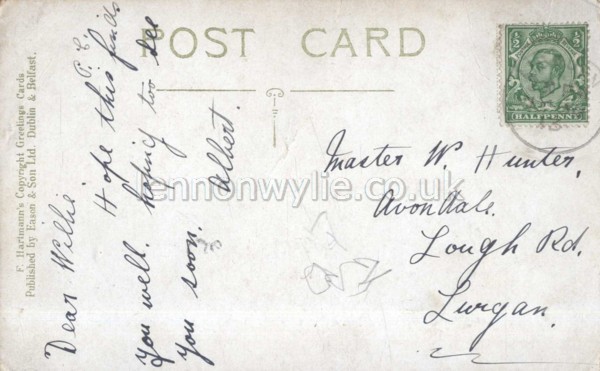 POST CARD
F. Hartmann's Copyright Greetings Cards
Published by Eason & Son Ltd. Dublin & Belfast.
P.C.
Dear Willie
Hope this finds
you well. hoping too see
you soon.
Albert.
Master W. Hunter,
Avondale.
Lough Rd,
Lurgan.
½ ½
HALFPENNY
lennonwylie.co.uk